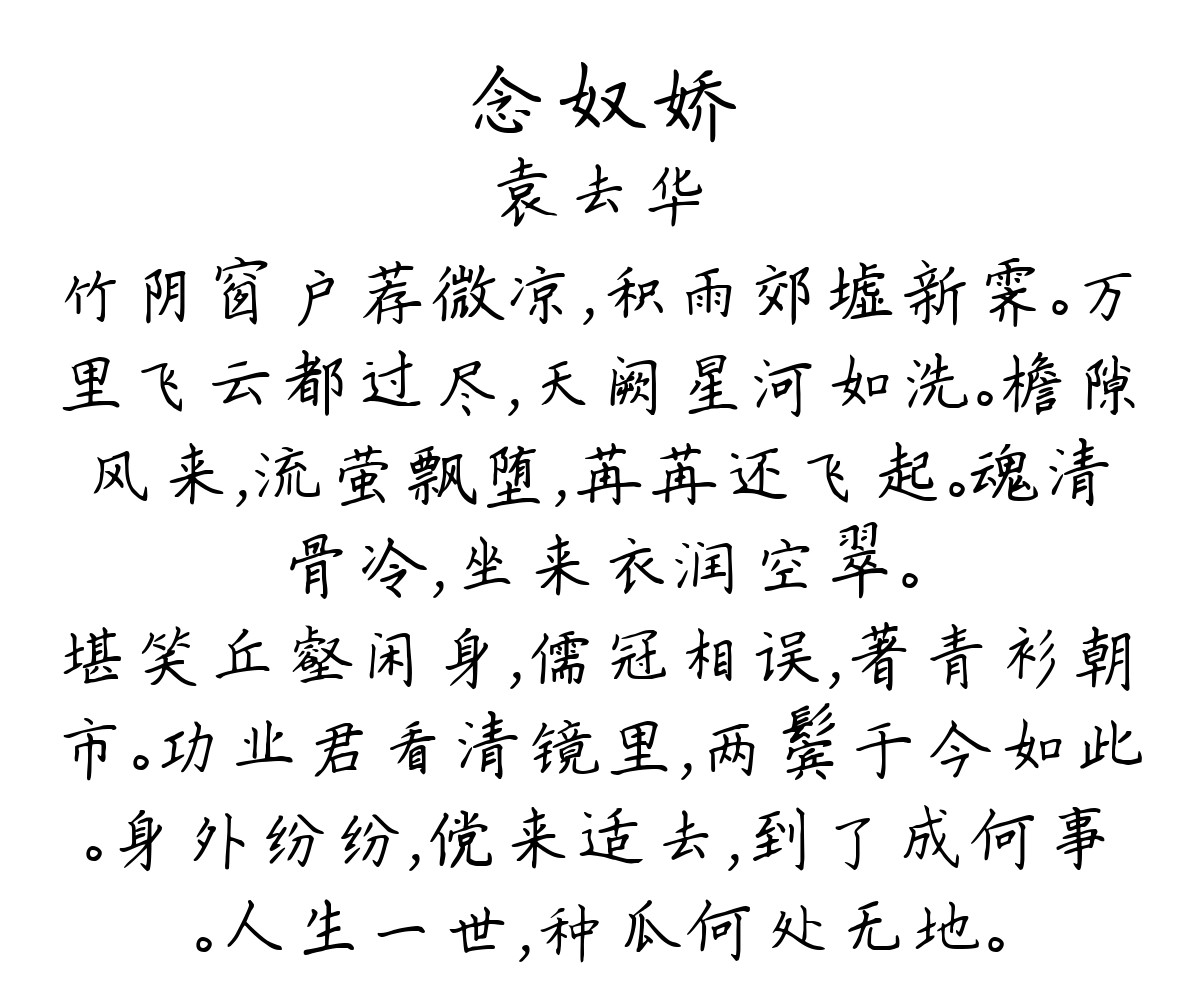 念奴娇
袁去华
竹阴窗户荐微凉,积雨郊墟新霁。万
里飞云都过尽,天阙星河如洗。檐隙
风来,流萤飘堕,苒苒还飞起。魂清
骨冷,坐来衣润空翠。
堪笑丘壑闲身,儒冠相误,著青衫朝
市。功业君看清镜里,两鬓于今如此
。身外纷纷,傥来适去,到了成何事
。人生一世,种瓜何处无地。